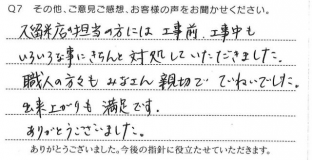 Q7 その他、ご意見ご感想、お客様の声をお聞かせください。
久留米店の担当の方には 工事前、工事中も
いろいろな事にきちんと対処していただきました。
職人の方々も みなさん 親切で ていねいでした。
出来上がりも 満足です.
ありがとうございました。
ありがとうございました。今後の指針に役立たせていただきます。